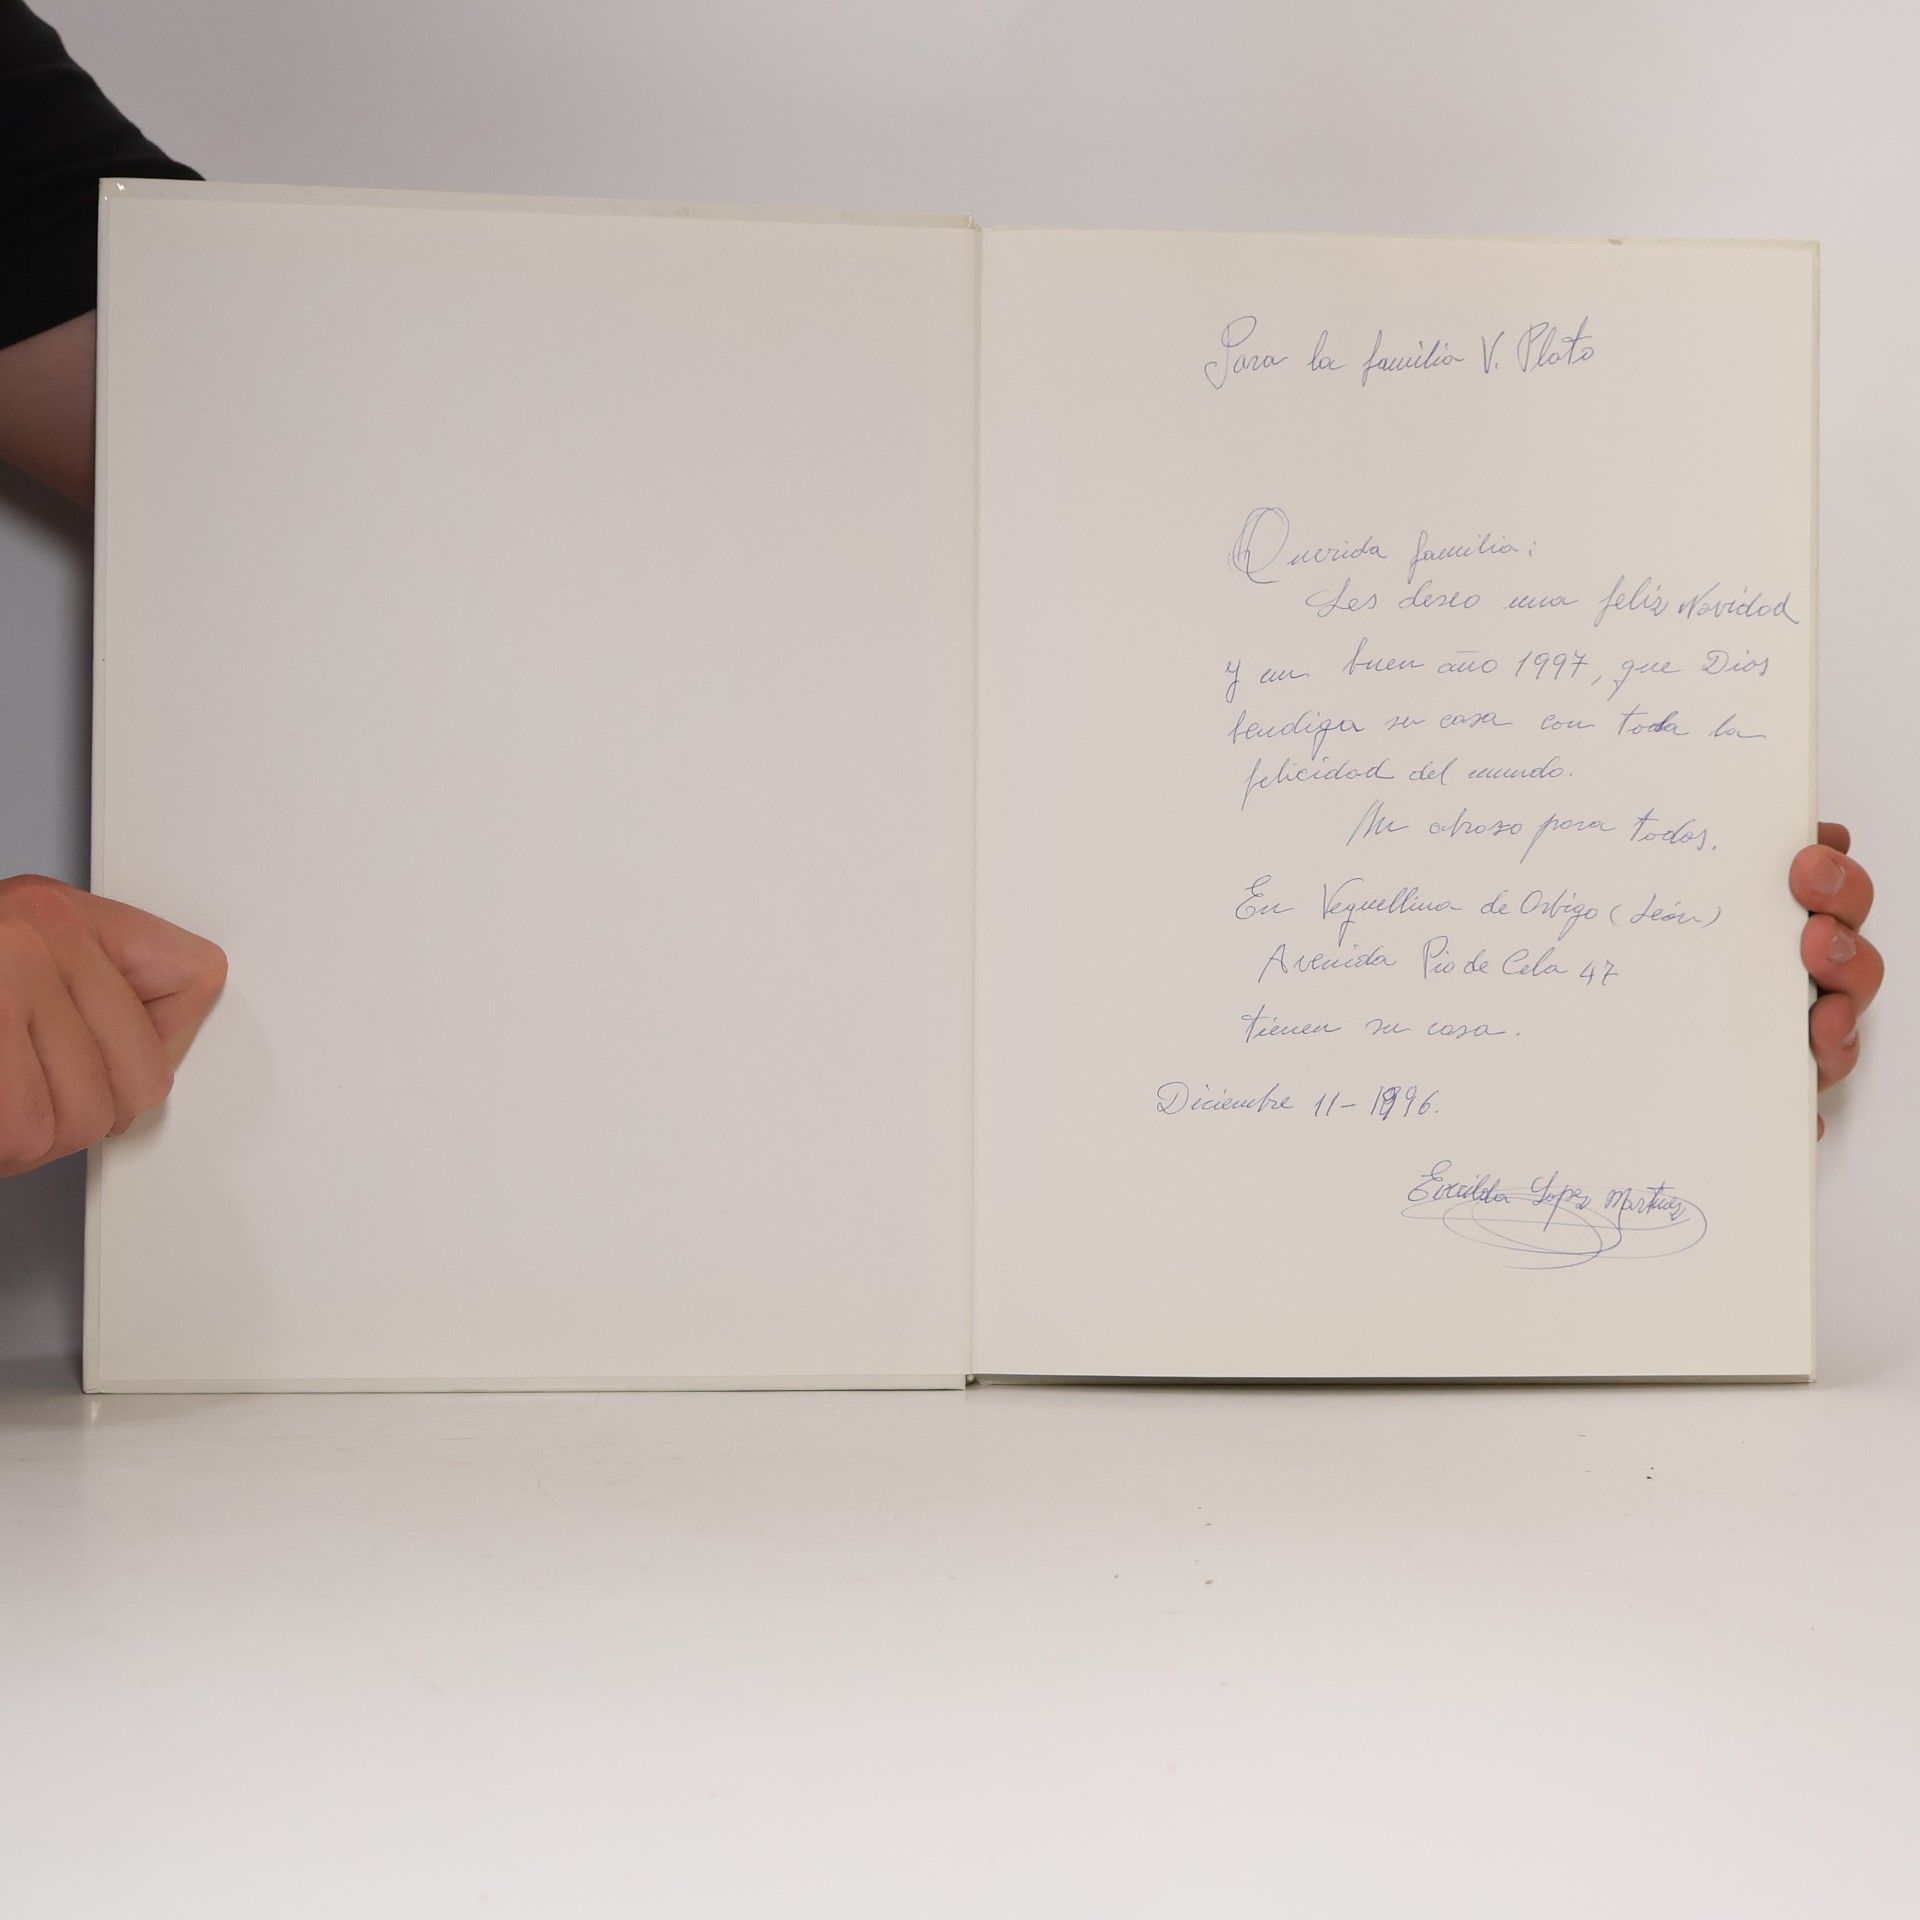 Para la familia V. Plato
Querida familia:
Les deseo una feliz Navidad
y un buen año 1997, que Dios
bendiga su casa con toda la
felicidad del mundo.
Un abrazo para todos.
En Veguellina de Orbigo (León)
Avenida Pio de Cela 47
tienen su casa.
Diciembre 11-1996.
Everilda Lopez Martinez